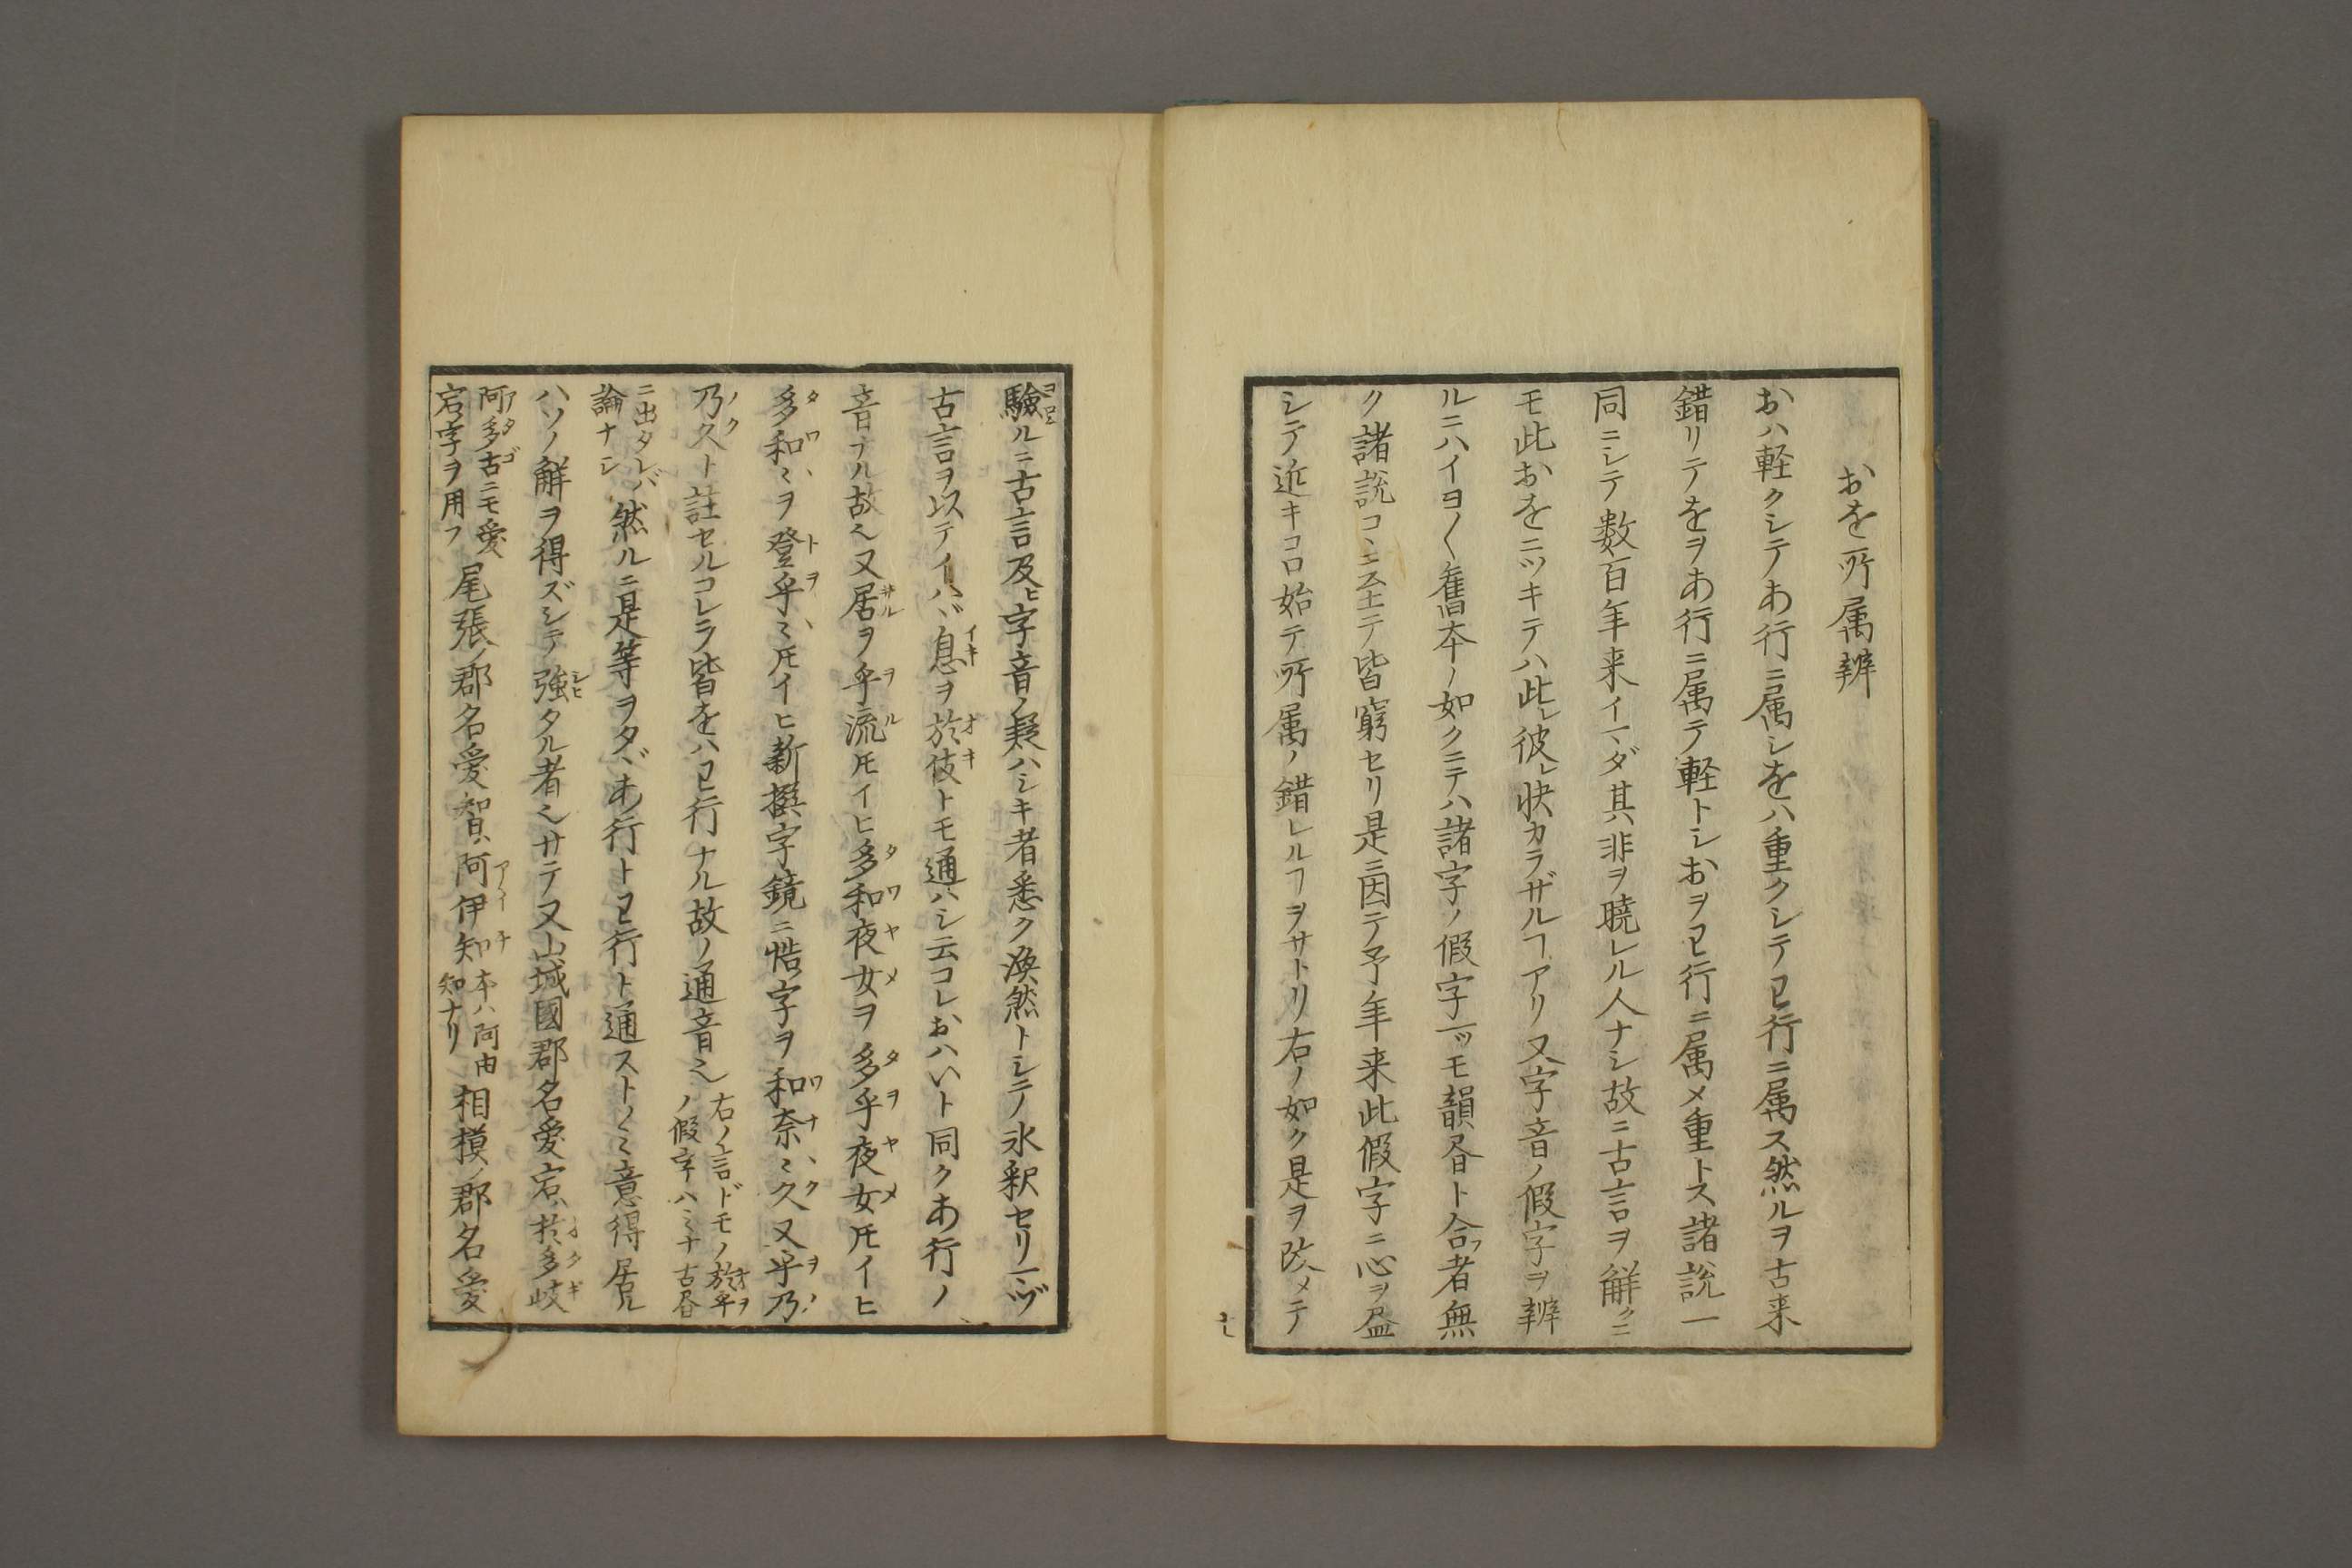 おを所属辨
おハ軽クシテあ行ニ属シをハ重クシテわ行ニ属ス然ルヲ古来
錯リテをヲあ行ニ属テ軽トシおヲわ行ニ属メ重トス諸説一
同ニシテ数百年来イマダ其非ヲ暁レル人ナシ故ニ古言ヲ解クニ
モ此おをニツキテハ此レ彼レ快カラザルヿアリ又字音ノ假字ヲ辨
ルニハイヨ〱舊本ノ如クニテハ諸字ノ假字一ツモ韻書ト合フ者無
ク諸説コヽニ至テ皆窮セリ是ニ因テ予年来此假字ニ心ヲ盡
シテ近キコロ始テ所属ノ錯レルヿヲサトリ右ノ如ク是ヲ改メテ
驗ルニ古言及ヒ字音ノ疑ハシキ者悉ク渙然トシテ氷釈セリ一ヅ
古言ヲ以テイハヾ息ヲ於伎トモ通ハシ云コレおハいト同クあ行ノ
音ナル故也又居ヲ乎流トモイヒ多和夜女ヲ多乎夜女トモイヒ
多和ミヲ登乎ミトモイヒ新撰字鏡ニ㤿字ヲ和奈ミ久又乎乃
乃久ト註セルコレラ皆をハわ行ナル故ノ通音也右ノ言ドモノ於乎
ノ假字ハミナ古書
ニ出タレバ
論ナシ然ルニ是等ヲタヾあ行トわ行ト通ストノミ意得居ル
ハソノ解ヲ得ズシテ強タル者也サテ又山城國郡名愛宕ハ於多岐
阿多古ニモ愛
宕字ヲ用フ尾張ノ郡名愛智ハ阿伊知本ハ阿由
知ナリ相摸ノ郡名愛